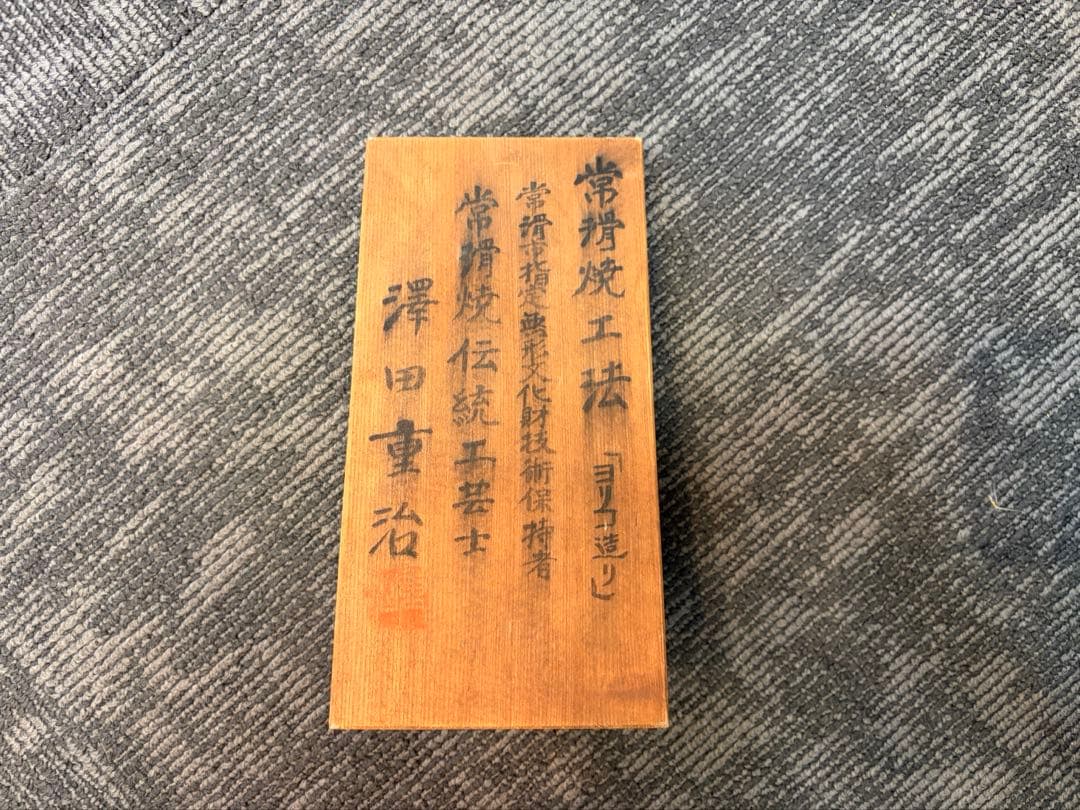 常滑焼工法「ヨリコ造り」
常滑市指定無形文化財技術保持者
常滑焼伝統工芸士
澤田重治